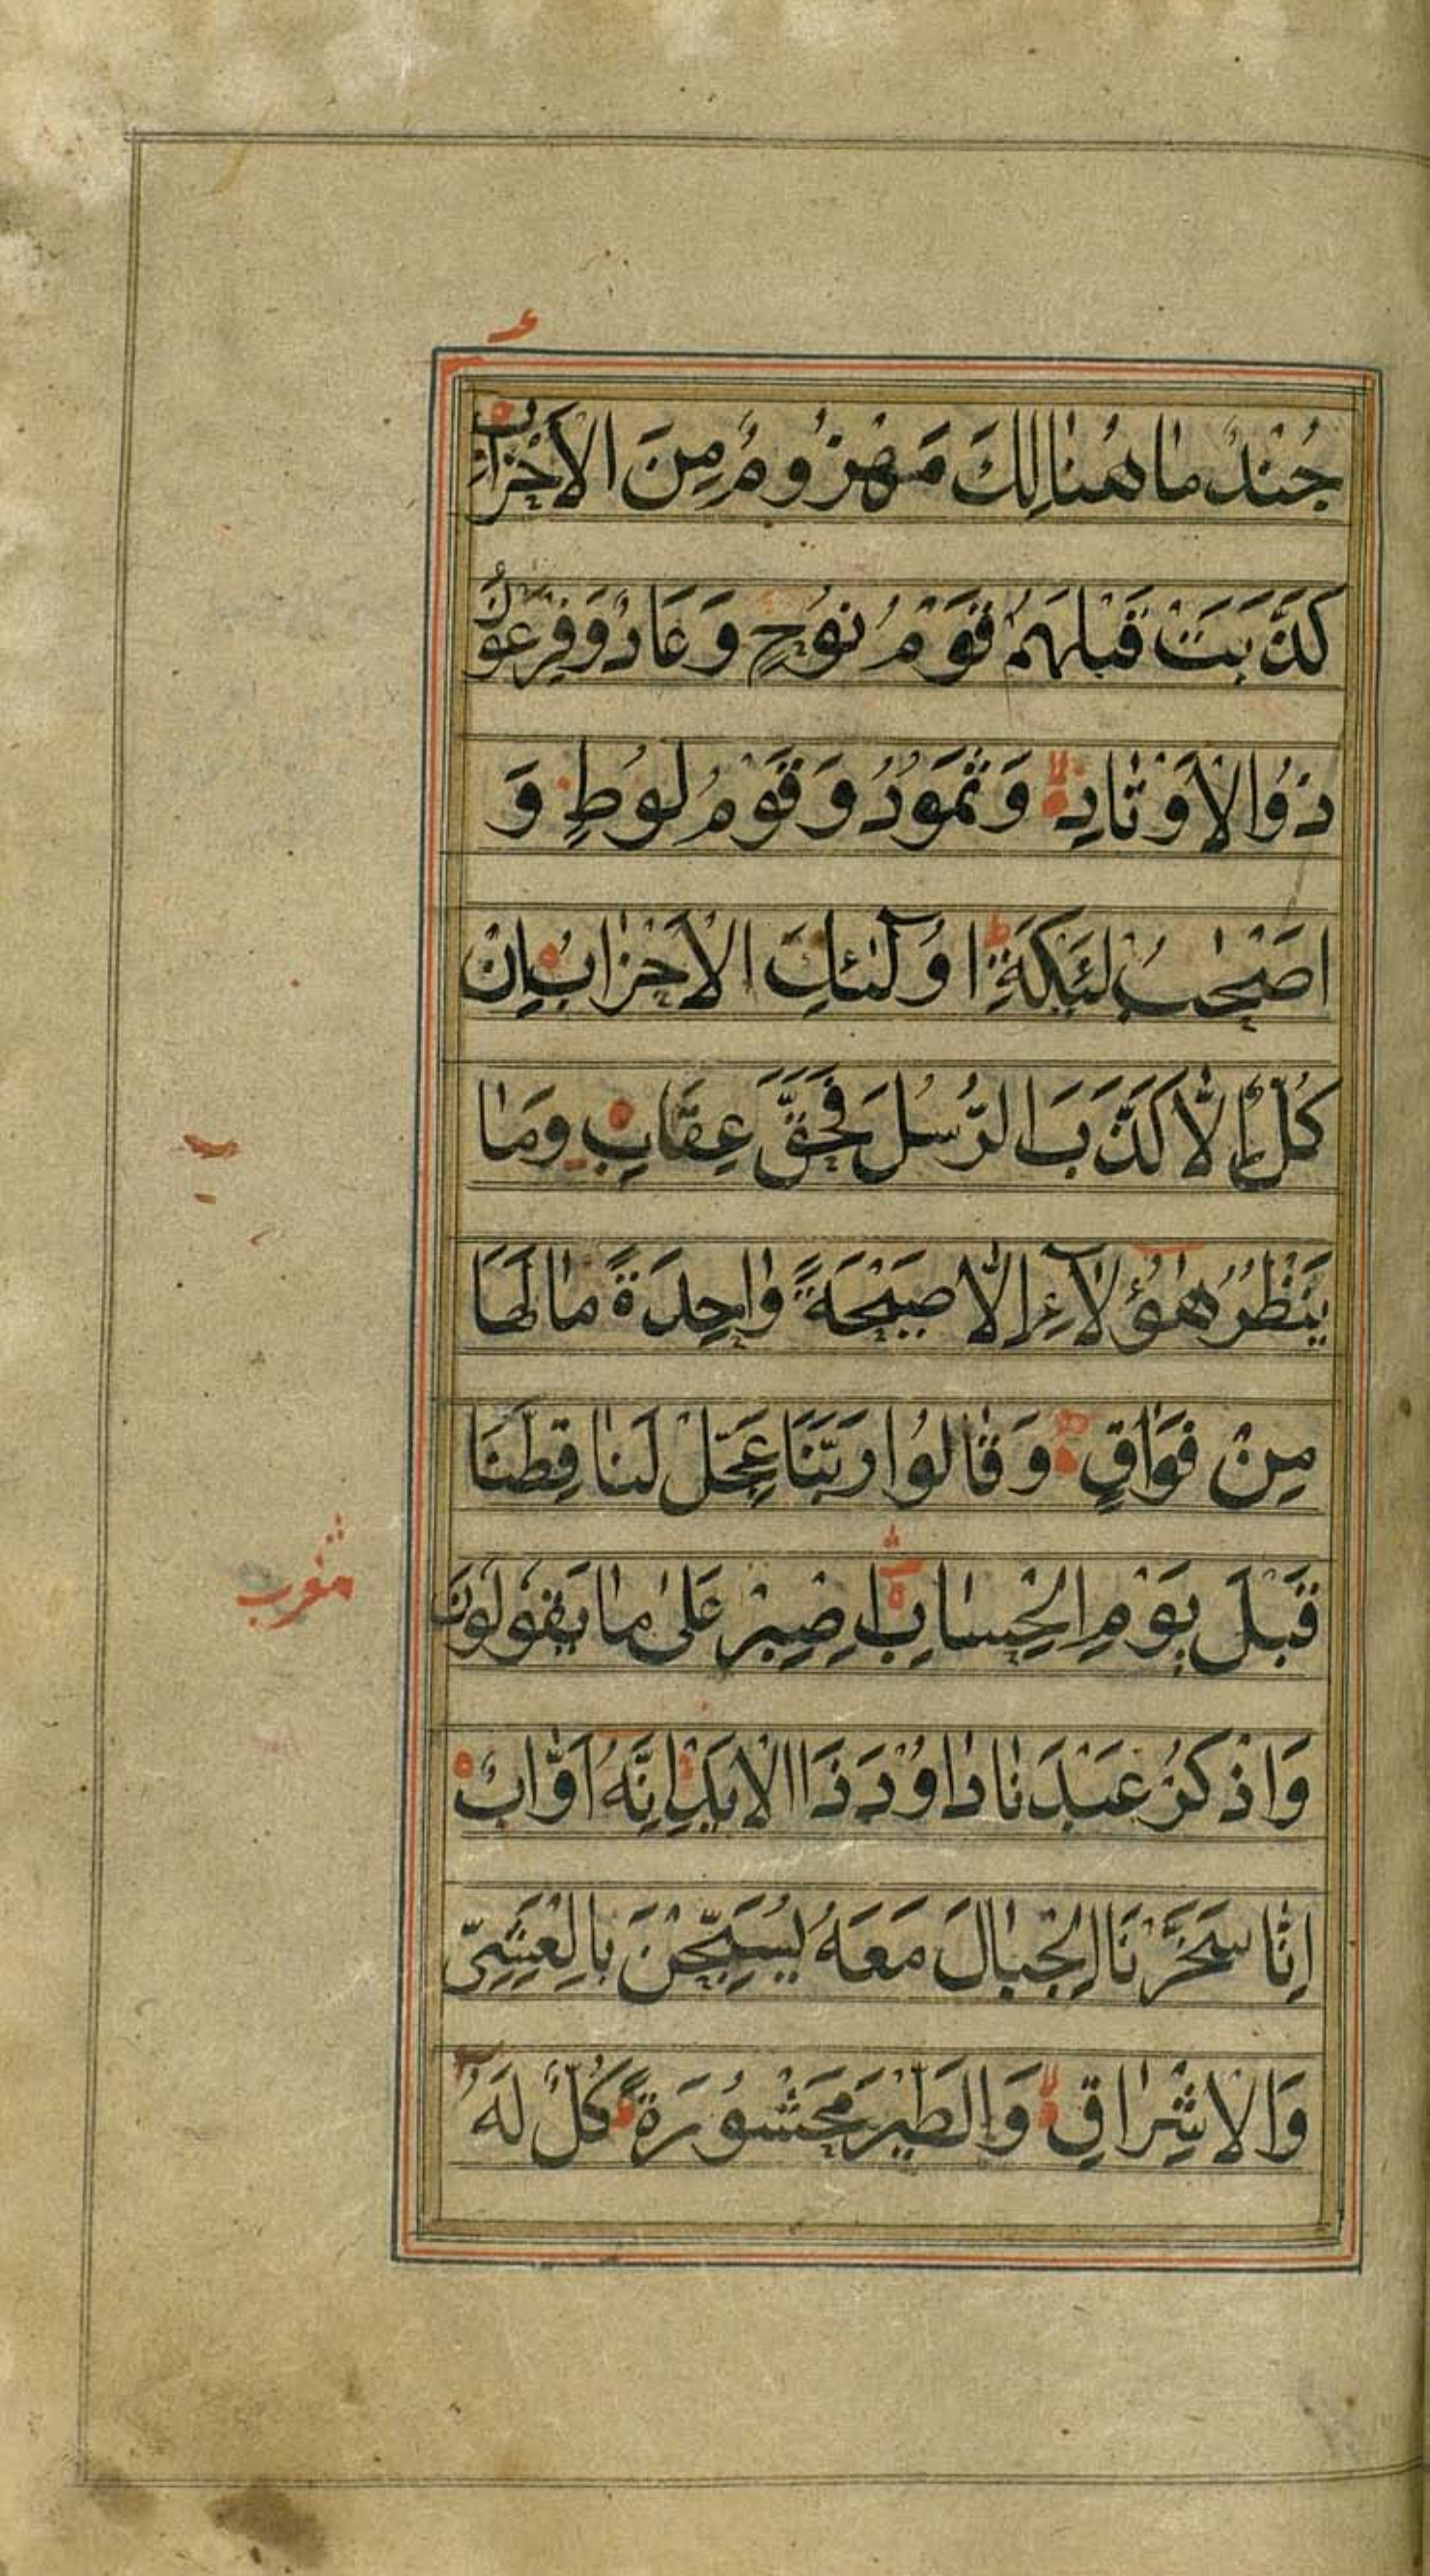 جُنْدٌ مٰا هُنٰالِكَ مَهْزُومٌ مِنَ الْاَحْزٰابِ
كَذَّبَتْ قَبْلَهُمْ قَوْمُ نُوْحٍ وَعَادٌ وَفِرْعَوْنُ
ذُوا الْاَوْتٰادِ وَثَمَوْدُ وَقَوْمُ لُوْطٍ وَ
اَصْحٰبُ لْئَيْكَةِ اُولٰٓئِكَ الْاَحْزٰابُ اِنْ
كُلٌّ اِلّٰا كَذَّبَ الرُّسُلَ فَحَقَّ عِقَابِ وَمٰا
يَنْظُرُ هٰٓؤُلٰٓاءِ اِلّٰا صَيْحَةً وٰاحِدَةً مٰا لَهَا
مِنْ فَوَاقٍ وَقٰالُوا رَبَّنَا عَجِّلْ لَنٰا قِطَّنَا
قَبْلَ يَوْمِ الْحِسٰابِ اِصْبِرْ عَلٰى مٰا يَقُولُونَ
وَاذْكُرْ عَبْدَنٰا دٰاوُدَ ذَا الْاَيْدِ اِنَّهُ اَوَّابٌ
اِنّٰا سَخَّرْنَا الْجِبٰالَ مَعَهُ يُسَبِّحْنَ بِالْعَشِيِّ
وَالْاِشْرٰاقِ وَالطَّيْرَ مَحْشُوْرَةً كُلٌّ لَهُ